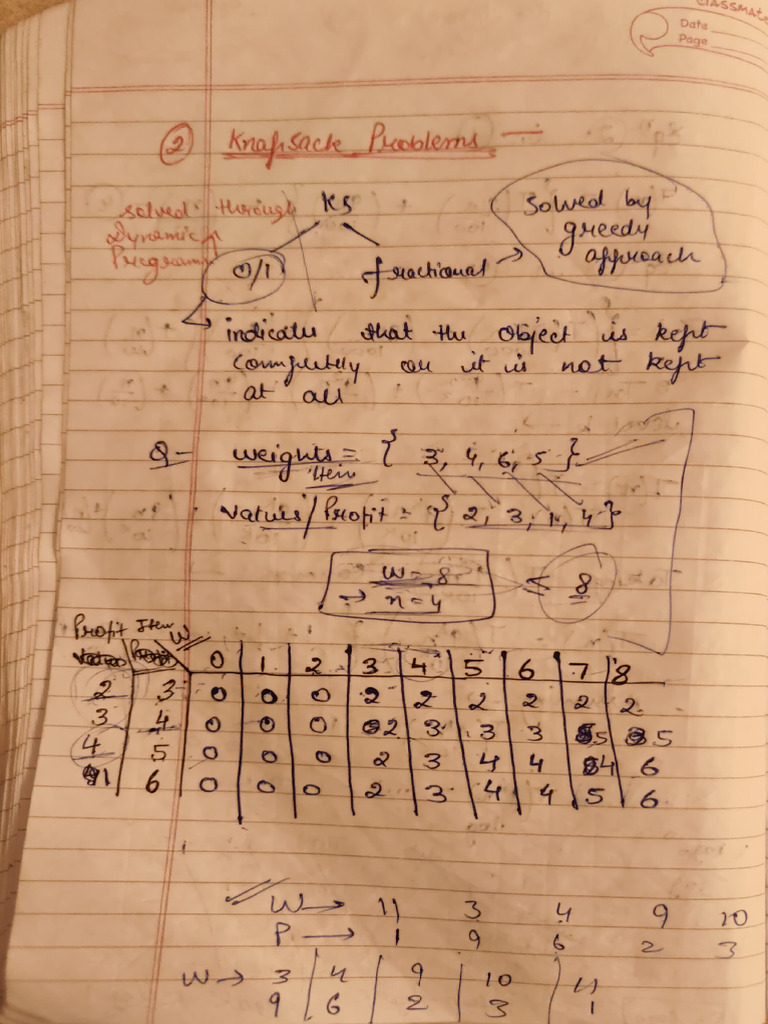 CLASSMATE
Date
Page
② Knapsack Problems —
solved through
Dynamic
Program
KS
0/1
fractional →
Solved by
greedy
approach
indicates that the object is kept
completely or it is not kept
at all
Q- weights = { 3, 4, 6, 5 }
Item
Values/Profit = { 2, 3, 1, 4 }
W = 8
→ n = 4
≤ 8
Profit Item W
0 1 2 3 4 5 6 7 8
2 3 0 0 0 2 2 2 2 2 2
3 4 0 0 0 2 3 3 3 5 5
4 5 0 0 0 2 3 4 4 4 6
1 6 0 0 0 2 3 4 4 5 6
W → 11 3 4 9 10
P → 1 9 6 2 3
W → 3 4 9 10 11
9 6 2 3 1